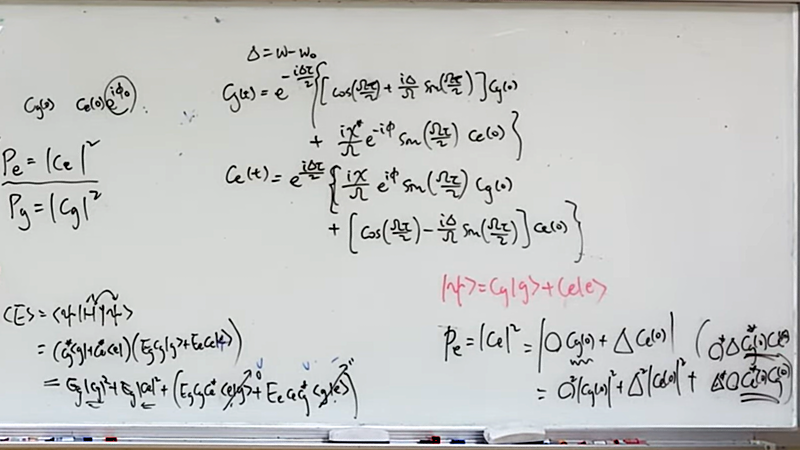 Δ = ω - ω₀
Cg(0) Ce(0) e^{iφ₀}
Cg(t) = e^{-iΔτ/2} { [cos(Ωτ/2) + iΔ/Ω sin(Ωτ/2)] Cg(0)
+ iχ*/Ω e^{-iφ} sin(Ωτ/2) Ce(0) }
Pe = |Ce|²
Pg = |Cg|²
Ce(t) = e^{iΔτ/2} { iχ/Ω e^{iφ} sin(Ωτ/2) Cg(0)
+ [cos(Ωτ/2) - iΔ/Ω sin(Ωτ/2)] Ce(0) }
|ψ> = Cg|g> + Ce|e>
<E> = <ψ|H|ψ>
= (Cg*<g| + Ce*<e|)(Eg Cg|g> + Ee Ce|e>)
= Eg|Cg|² + Eg|Ce|² + (Eg Cg Ce* <e|g> + Ee Ce Cg* <g|e>)
0 0
Pe = |Ce|² = |O Cg(0) + Δ Ce(0)|
= O²|Cg(0)|² + Δ²|Ce(0)|² +
(O*Δ Cg*(0) Ce(0)
Δ*O Ce*(0) Cg(0))